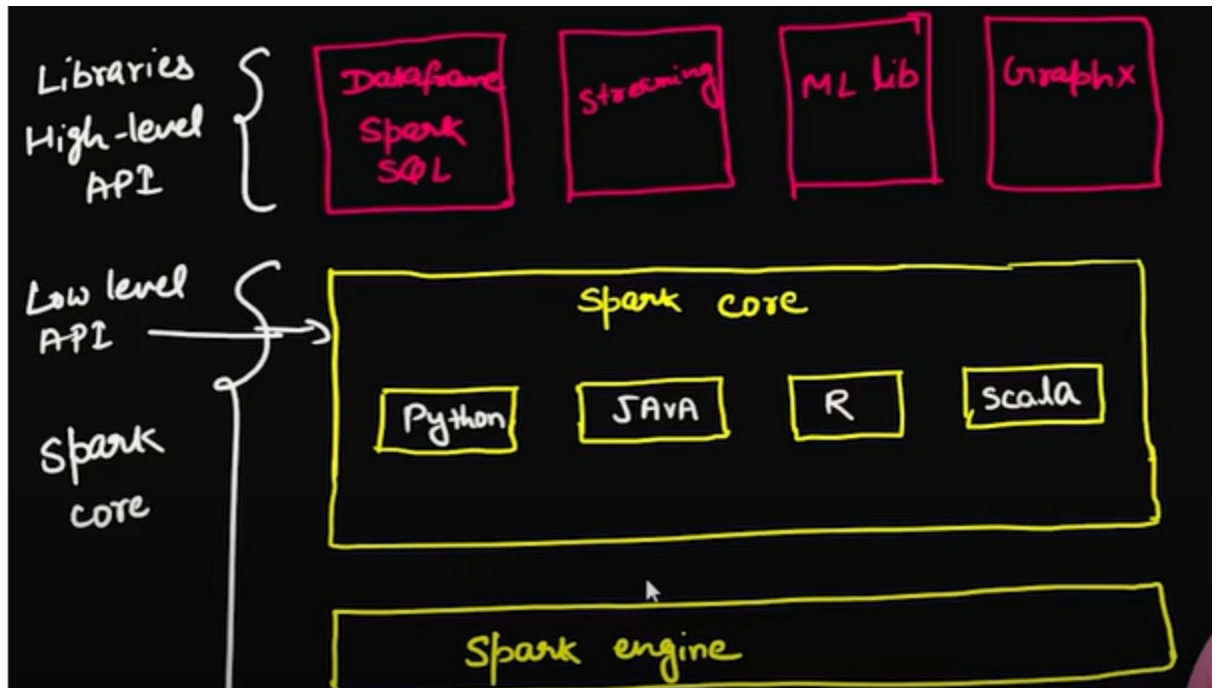 Libraries
High-level
API
Dataframe
Spark
SQL
Streaming
ML lib
Graphx
Low level
API
Spark core
Python
JAVA
R
Scala
Spark
core
Spark engine